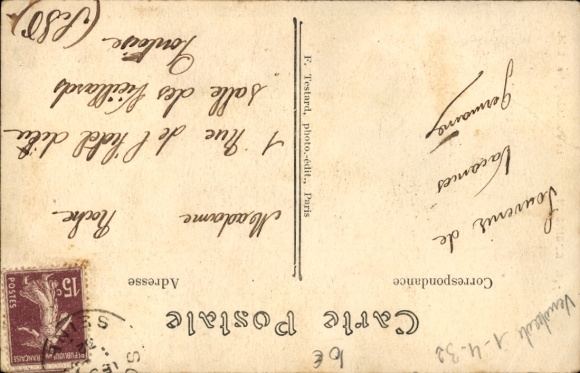 Carte Postale
Correspondance
Adresse
Souvenir de
Vacances
Germaine
Madame Roche
1 Rue de l'hotel dieu
salle des Vieillards
Pontoise
(S&O)
F. Testard, photo.-édit., Paris
15c
POSTES
RÉPUBLIQUE FRANÇAISE
Vendredi 1-4-32
6€